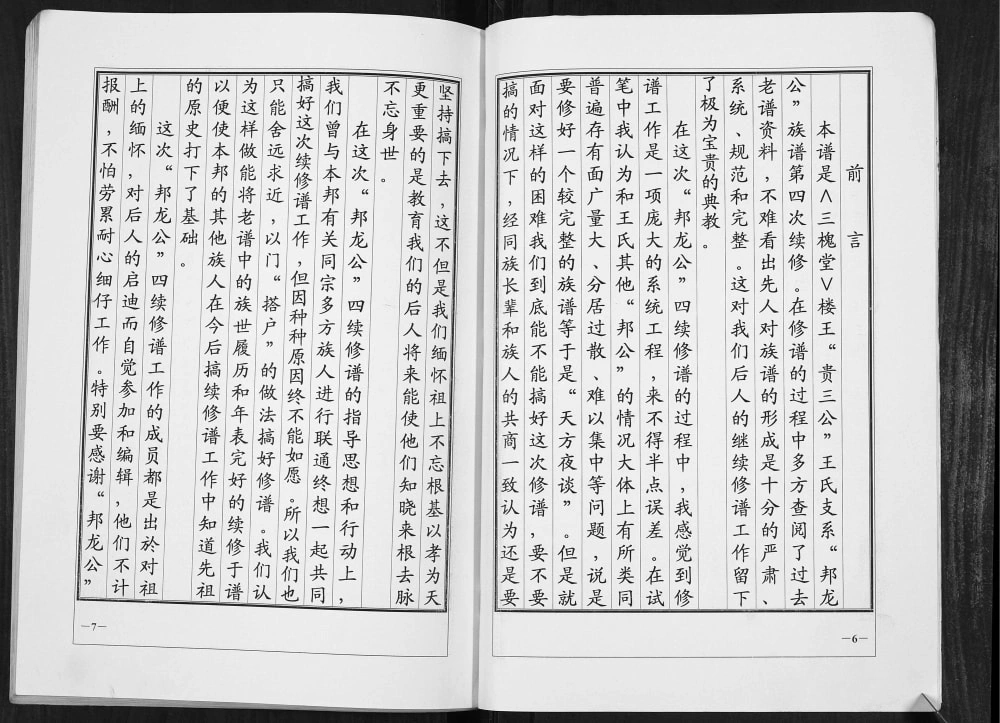 前言
本谱是∧三槐堂∨楼王“贵三公”王氏支系“邦龙
公”族谱第四次续修。在修谱的过程中多方查阅了过去
老谱资料，不难看出先人对族谱的形成是十分的严肃、
系统、规范和完整。这对我们后人的继续修谱工作留下
了极为宝贵的典教。
在这次“邦龙公”四续修谱的过程中，我感觉到修
谱工作是一项庞大的系统工程，来不得半点误差。在试
笔中我认为和王氏其他“邦公”的情况大体上有所类同
普遍存有面广量大、分居过散、难以集中等问题，说是
要修好一个较完整的族谱等于是“天方夜谈”。但是就
面对这样的困难我们到底能不能搞好这次修谱，要不要
搞的情况下，经同族长辈和族人的共商一致认为还是要
—6—
坚持搞下去，这不但是我们缅怀祖上不忘根基以孝为天
更重要的是教育我们的后人将来能使他们知晓来根去脉
不忘身世。
在这次“邦龙公”四续修谱的指导思想和行动上，
我们曾与本邦有关同宗多方族人进行联通终想一起共同
搞好这次续修谱工作，但因种种原因终不能如愿。所以我们也
只能舍远求近，以门“搭户”的做法搞好修谱。我们认
为这样做能将老谱中的族世履历和年表完好的续修于谱
以便使本邦的其他族人在今后搞续修谱工作中知道先祖
的原史打下了基础。
这次“邦龙公”四续修谱工作的成员都是出於对祖
上的缅怀，对后人的启迪而自觉参加和编辑，他们不计
报酬，不怕劳累耐心细仔工作。特别要感谢“邦龙公”
—7—